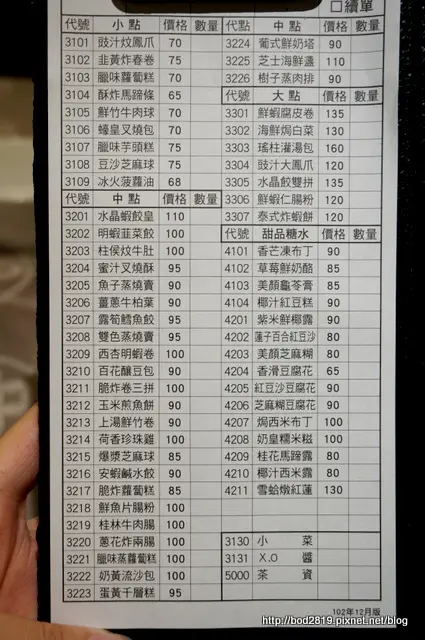 □續單
代號 小點 價格 數量
3101 豉汁炆鳳爪 70
3102 韭黃炸春卷 75
3103 臘味蘿蔔糕 70
3104 酥炸馬蹄條 65
3105 鮮竹牛肉球 70
3106 蠔皇叉燒包 70
3107 臘味芋頭糕 75
3108 豆沙芝麻球 75
3109 冰火菠蘿油 68
代號 中點 價格 數量
3201 水晶蝦餃皇 110
3202 明蝦韭菜餃 100
3203 柱侯炆牛肚 100
3204 蜜汁叉燒酥 95
3205 魚子蒸燒賣 90
3206 薑蔥牛柏葉 90
3207 露筍鱈魚餃 95
3208 雙色蒸燒賣 95
3209 西杏明蝦卷 100
3210 百花釀豆包 90
3211 脆炸卷三拼 100
3212 玉米煎魚餅 90
3213 上湯鮮竹卷 90
3214 荷香珍珠雞 100
3215 爆漿芝麻球 85
3216 安蝦鹹水餃 90
3217 脆炸蘿蔔糕 85
3218 鮮魚片腸粉 100
3219 桂林牛肉腸 100
3220 蔥花炸兩腸 100
3221 臘味蒸蘿蔔糕 100
3222 奶黃流沙包 100
3223 蛋黃千層糕 95
代號 中點 價格 數量
3224 葡式鮮奶塔 90
3225 芝士海鮮盞 110
3226 樹子蒸肉排 90
代號 大點 價格 數量
3301 鮮蝦腐皮卷 135
3302 海鮮焗白菜 130
3303 瑤柱灌湯包 160
3304 豉汁大鳳爪 120
3305 水晶餃雙拼 135
3306 鮮蝦仁腸粉 120
3307 泰式炸蝦餅 120
代號 甜品糖水 價格 數量
4101 香芒凍布丁 90
4102 草莓鮮奶酪 85
4103 美顏龜苓膏 85
4104 椰汁紅豆糕 90
4201 紫米鮮椰露 90
4202 蓮子百合紅豆沙 80
4203 美顏芝麻糊 80
4204 香滑豆腐花 65
4205 紅豆沙豆腐花 90
4206 芝麻糊豆腐花 90
4207 焗西米布丁 100
4208 奶皇糯米糍 100
4209 桂花馬蹄露 80
4210 椰汁西米露 80
4211 雪蛤燉紅蓮 130
3130 小菜
3131 X.O醬
5000 茶資
102年12月版
http://bod2819.pixnet.net/blog